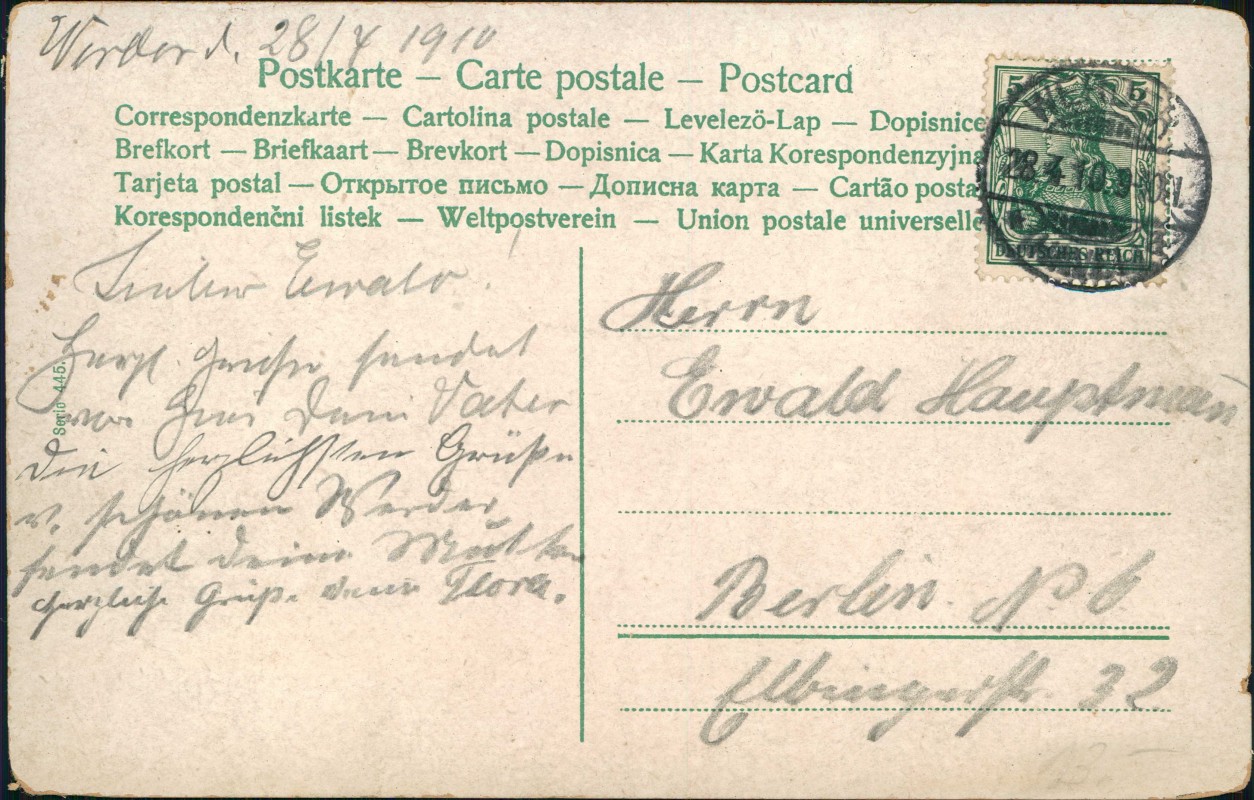 Werder d. 28/4 1910
Postkarte — Carte postale — Postcard
Correspondenzkarte — Cartolina postale — Levelezö-Lap — Dopisnice
Brefkort — Briefkaart — Brevkort — Dopisnica — Karta Korespondenzyjna
Tarjeta postal — Открытое письмо — Дописна карта — Cartão postal
Korespondenčni listek — Weltpostverein — Union postale universelle
5 5
28.4.10.
DEUTSCHES REICH
Serie 445.
Lieber Ewald.
Herzl. Grüße sendet
Dein Vater
Die herzlichsten Grüße
v. schönen Werder
sendet deine Mutter
herzliche Grüße dein Flora.
Herrn
Ewald Hauptmann
Berlin. No
Elbingerstr. 32